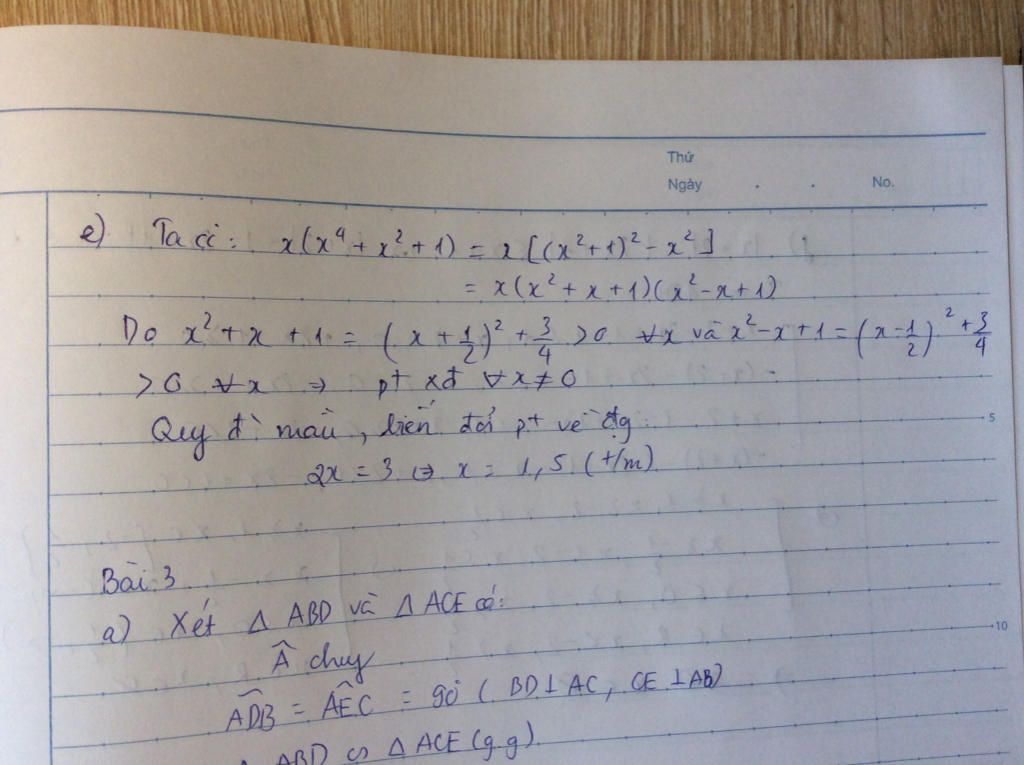 Thứ
Ngày . . No.
e) Ta có: x(x⁴ + x² + 1) = x[(x²+1)² - x²]
= x(x² + x + 1)(x² - x + 1)
Do x² + x + 1 = (x + 1/2)² + 3/4 > 0 ∀x và x² - x + 1 = (x - 1/2)² + 3/4
> 0 ∀x ⇒ pt xđ ∀x ≠ 0
Quy đồng mẫu, biến đổi pt về dạng:
5
2x = 3 ⇔ x = 1,5 (t/m)
Bài 3
a) Xét Δ ABD và Δ ACE có:
10
Â chung
ADB = AEC = 90° (BD ⊥ AC, CE ⊥ AB)
Δ ABD ∽ Δ ACE (g.g)